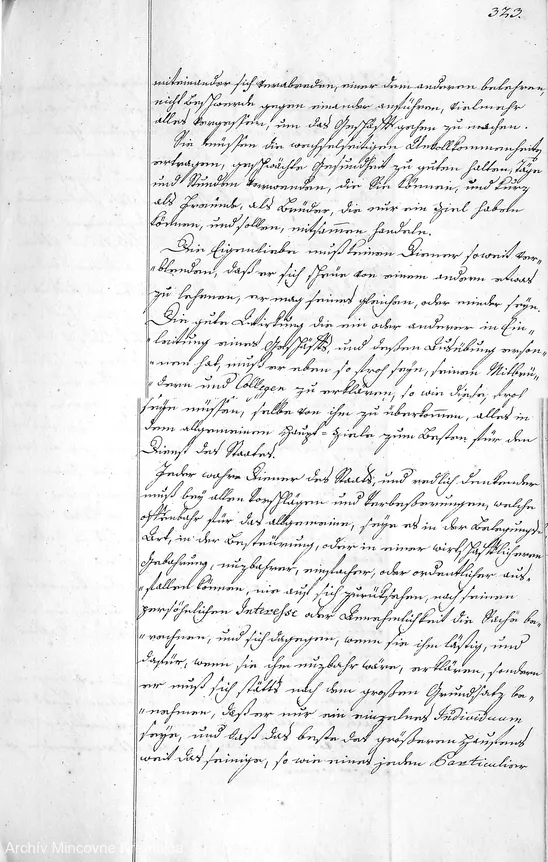 323.
miteinander sich verabreden, einer dem anderen belehren,
nicht Beschwerde gegen einander anführen, vielmehr
alles vergessen, um das Geschäft gehen zu machen.
Sie müssen die wechselseitigen Unvollkommenheiten
ertragen, geschwächte Gesundheit zu guten halten, Täge
und Stunden verwenden, die Sie können, und kurz
als Freunde, als Brüder, die nur ein Ziel haben
können, und sollen, mitsammen handeln.
Die Eigenliebe muß keinen Diener soweit ver-
-blenden, daß er sich scheue von einem andern etwas
zu lehrnen, er mag seines gleichen, oder minder seyn.
Die gute Wirkung die ein oder anderer in Ein-
-leitung eines Geschäfts, und dessen Ausübung erson-
-nen hat, muß er eben so froh seyn, seinen Mitbrü-
-dern und Collegen zu erklären, so wie diese, froh
seyn müssen, selbe von ihm zu überkommen, alles in
dem allgemeinen Haupt-Ziele zum Besten für den
Dienst des Staates.
Jeder wahre Diener des Staats, und redlich denkender
muß bey allen Vorschlägen und Verbesserungen, welche
offenbahr für das allgemeine, seye es in der Belegungs-
Art, in der Besteürung, oder in einer wirthschaftlicheren
Gebahrung, nuzbahrer, einfacher, oder ordentlicher aus-
-fallen können, nie auf sich zurücksehen, nach seinem
persöhnlichen Interesse oder Annehmlichkeit die Sache be-
-rechnen, und sich dagegen, wenn sie ihm lästig, und
dafür, wenn sie ihm nuzbahr wäre, erklären, sondern
er muß sich stätts nach dem großen Grundsatz be-
-nehmen, daß er nur ein einzelnes Individuum
seye, und daß das beste des größeren Haufens
weit das seinige, so wie eines jeden Particulier
Archiv Mincovne Kremnica